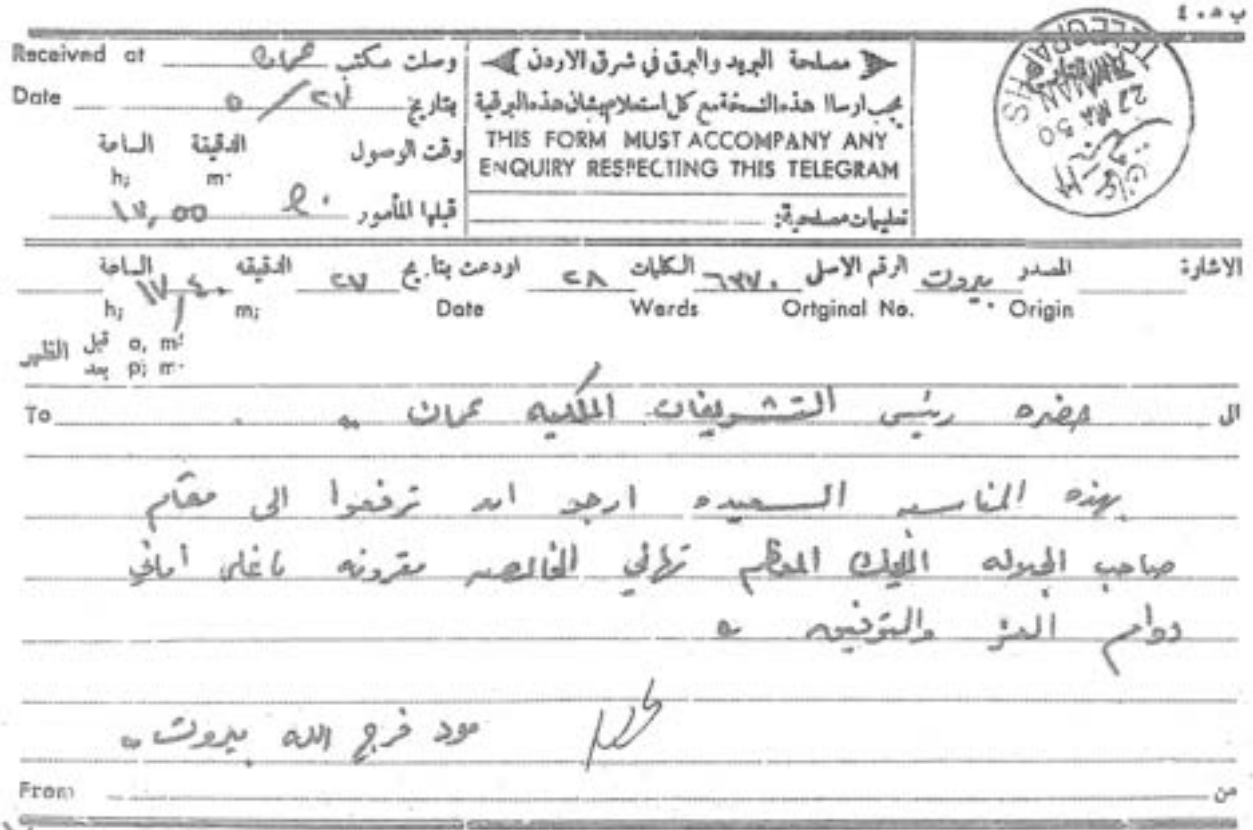 ب ٤٠٥
Received at وصلت مكتب عمان
Date بتاريخ ٢٧/٥
وقت الوصول الدقيقة الساعة
h; m·
قبلها المأمور ١٧,٥٥
مصلحة البريد والبرق في شرق الاردن
يجب ارسال هذه النسخة مع كل استعلام بشان هذه البرقية
THIS FORM MUST ACCOMPANY ANY
ENQUIRY RESPECTING THIS TELEGRAM
تعليمات مصلحية:
TELEGRAPHS
AMMAN
27 MA 50
الاشارة المصدر بيروت الرقم الاصلي ٦٣٧٠ الكلمات ٢٨ اودعت بتاريخ ٢٧ الدقيقه الساعة ١٧/٤٠
h; m; Date Words Ortginal No. Origin
قبل a, m: الظهر
بعد p; m·
To الى حضره رئيس التشريفات الملكيه عمان
بهذه المناسبه السعيده ارجو ان ترفعوا الى مقام
صاحب الجلاله الملك المعظم تهاني الخالصه مقرونه باغلى اماني
دوام العز والتوفيق
مود فرج الله بيروت
From من